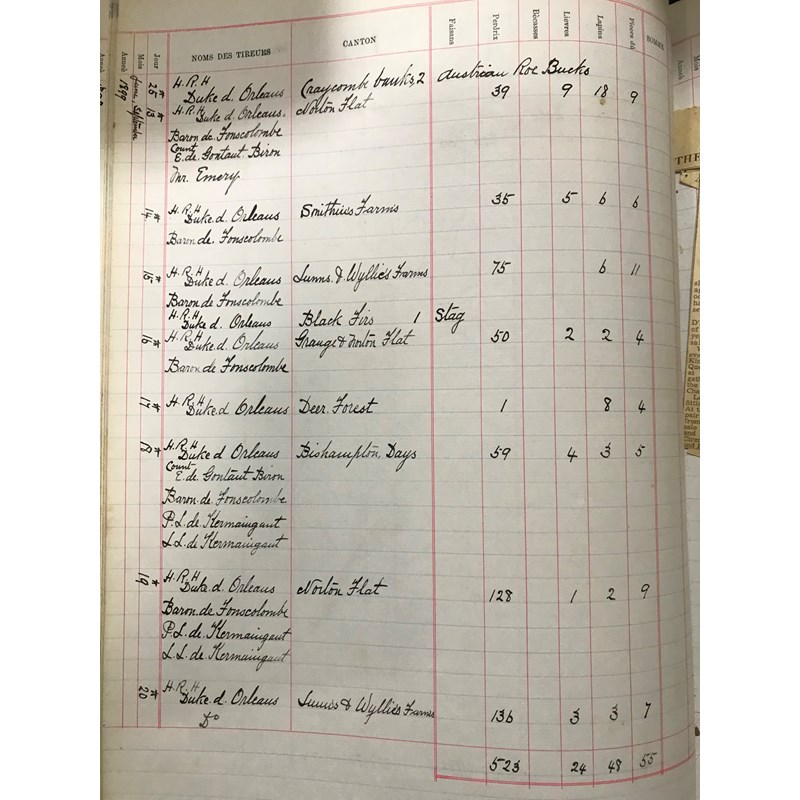 Anneè Mois Jour NOMS DES TIREURS CANTON Faisans Perdrix Bécasses Lievres Lapins Pièces du HOMME
1899 June, September
25 H.R.H Duke d. Orleans Craycombe banks, 2 Austrian Roe Bucks
13 H.R.H Duke d. Orleans. Norton Flat 39 9 18 9
Baron de Fonscolombe
Count E. de Gontaut Biron
Mr. Emery
14 H.R.H Duke d. Orleans Smithies Farms 35 5 6 6
Baron de. Fonscolombe
15 H.R.H Duke d. Orleans & Wyllies Farms 75 6 11
Baron de Fonscolombe
H.R.H Duke d. Orleans Black Firs 1 Stag
16 H.R.H Duke d. Orleans Grange & Norton Flat 50 2 2 4
Baron de Fonscolombe
17 H.R.H Duke d Orleans Deer. Forest 1 8 4
18 H.R.H Duke d Orleans Bishampton, Days 59 4 3 5
Count E. de Gontaut Biron
Baron de Fonscolombe
P.L. de Kermaingant
L.L. de Kermaingant
19 H.R.H Duke d. Orleans Norton Flat 128 1 2 9
Baron de Fonscolombe
P.L. de Kermaingant
L.L. de Kermaingant
20 H.R.H Duke d. Orleans & Wyllies Farms 136 3 3 7
Do
523 24 48 55
THE